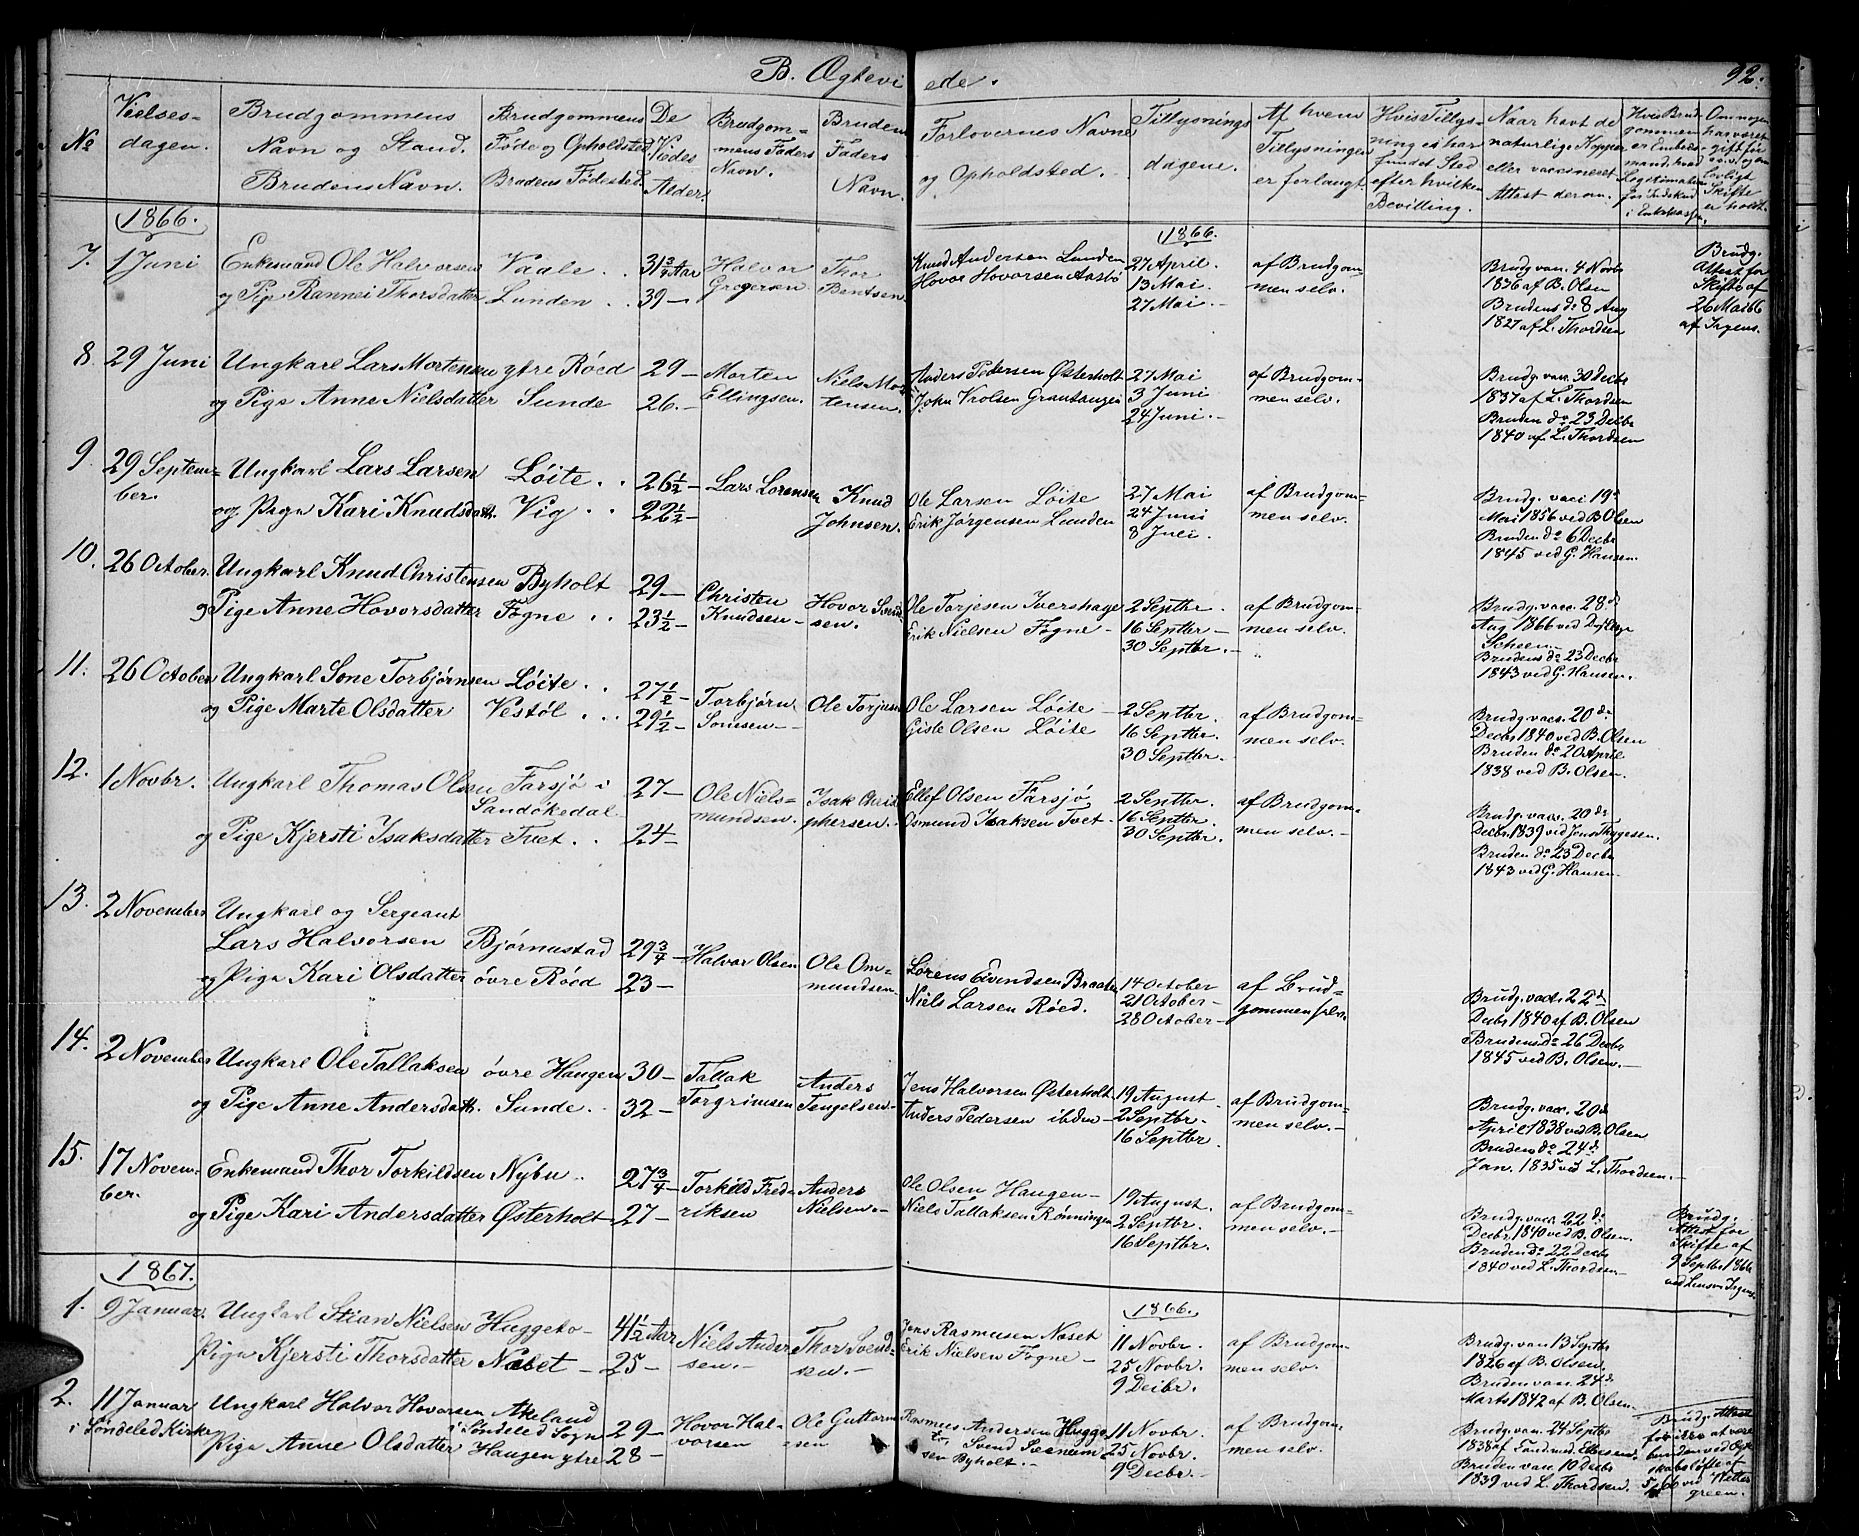 B. Ægtevi ede. 92.
No
Vielses-
dagen.
Brudgommens
Navn og Stand.
Brudens Navn.
Brudgommens
Føde og Opholdsted
Brudens Fødested.
De
Viedes
Alder.
Brudgom-
mens Faders
Navn.
Brudens
Faders
Navn.
Forlovernes Navne
og Opholdsted.
Tillysnings
dagene.
Af hvem
Tillysningen
er forlangt
Hvis Tillys-
ning ei har
fundet Sted
efter hvilken
Bevilling.
Naar havt de
naturlige Kopper
eller vaccineret
Attest derom.
Hvis Brud-
gommen
er Embeds-
mand, hvad
Legitimation
for Indskud
i Enkekassen.
Om nogen
har været
gift før
og om
lovligt
Skifte
er holdt.
1866.
1866.
7. 1 Juni
Enkemand Ole Halvorsen
og Pige Rannei Thorsdatter
Vaale . .
Lunden . .
31 3/4 Aar
39 —
Halvor
Gregersen
Thor
Bentsen
Knud Andersen Lunden
Hovor Hovorsen Aasbø
27 April.
13 Mai.
27 Mai. —
af Brudgom-
men selv.
Brudg. vac. 4 Novbr
1836 af B. Olsen
Brudens do 8 Aug
1827 af L. Thordsen
Brudg.
Attest for
Skifte af
26 Mai 66
af Irgens.
8. 29 Juni
Ungkarl Lars Mortensen
og Pige Anne Nielsdatter
ytre Röed
Sunde
29 —
26. —
Morten
Ellingsen.
Niels Mor-
tensen.
Anders Pedersen Østerholt
John Trolsen
27 Mai
3 Juni
24 Juni. —
af Brudgom-
men selv.
Brudg. vac. 30 Decbr
1837 af L. Thordsen
Bruden do 23 Decbr
1840 af L. Thordsen
9. 29 Septem-
ber.
Ungkarl Lars Larsen
og Pige Kari Knudsdatt.
Löite . .
Vig . .
26 1/2 —
22 1/2 —
Lars Lorensen
Knud
Johnsen.
Ole Larsen Löite
Erik Jørgensen Lunden
27 Mai
24 Juni
8 Juli.
af Brudgom-
men selv.
Brudg. vacc. 19de
Mai 1856 ved B. Olsen
Bruden do 6 Decbr
1845 ved G. Hansen.
10. 26 October.
Ungkarl Knud Christensen
og Pige Anne Hovorsdatter
Byholt
Fogne . .
29 —
23 1/2 —
Christen
Knudsen —
Hovor
sen.
Ole Torjesen Ivershage
Erik Nielsen Fogne —
2 Septbr.
16 Septbr —
30 Septbr. —
af Brudgom-
men selv.
Brudg. vac. 28 d
Aug 1866 ved
Scheen. —
Brudens do 23 Decbr
1843 ved G. Hansen.
11. 26 October
Ungkarl Sone Torbjørnsen
og Pige Marte Olsdatter
Löite . .
Vestöl . . .
27 1/2 —
29 1/2 —
Torbjørn
Sonesen —
Ole Torjusen
Ole Larsen Löite —
Giste Olsen Löite
2 Septbr.
16 Septbr.
30 Septbr.
af Brudgom-
men selv.
Brudg. vac. 20 de
Decbr 1840 ved B. Olsen
Bruden do 20 April
1838 ved B. Olsen.
12. 1 Novbr.
Ungkarl Thomas Olsen
og Pige Kjersti Isaksdatter
Farsjö i
Sandøkedal
Tvet . .
27 —
24 —
Ole Niels-
mundsen.
Isak Christ
phersen.
Ellef Olsen Farsjö
Osmund Isaksen Tvet —
2 Septbr.
16 Septbr.
30 Septbr.
af Brudgom-
men selv. —
Brudg. vac. 20 de
Decbr. 1839 ved Jens Thygesen.
Bruden do 23 Decbr
1843 ved G. Hansen.
13. 2 November
Ungkarl og Sergeant
Lars Halvorsen
og Pige Kari Olsdatter
Bjørnustad
övre Röed
29 3/4 —
23 —
Halvor Olsen
Ole Om-
mundsen
Lorens Evendsen Braaten
Niels Larsen Röed.
14 October
21 October —
28 October —
af Brud-
gommen selv.
Brudg. vacc. 22 d
Decbr 1840 af B. Olsen
Brudens do 26 Decbr
1845 ved B. Olsen. —
14. 2 November
Ungkarl Ole Tallaksen
og Pige Anne Andersdatt.
övre Haugen
Sunde .
30 —
32 —
Tallak
Torgrimsen
Anders
Tengelsen —
Jens Halvorsen Østerholt
Anders Pedersen ibdm —
19 August
2 Septbr.
16 Septbr.
af Brudgom-
men selv. —
Brudg. vac. 20 d
April 1838 ved B. Olsen
Bruden do 24 d
Jan. 1835 ved L. Thordsen. —
15. 17 Novem-
ber.
Enkemand Thor Torkildsen
og Pige Kari Andersdatter
Nybu .
Østerholt
27 3/4 —
27 —
Torkild Fred-
riksen
Anders
Nielsen. —
Ole Olsen Haugen —
Niels Tallaksen Rønningen
19 August.
2 Septbr.
16 Septbr.
af Brudgom-
men selv. —
Brudg. vac. 22 d
Decbr. 1840 ved B. Olsen.
Bruden do 22 Decbr
1840 ved L. Thordsen —
Brudg.
Attest for
Skifte af
9 Septbr 1866
ved Lensm. Irgens.
1867.
1866.
1. 9 Januar.
Ungkarl Stian Nielsen
Pige Kjersti Thorsdatter
Huggeto —
Næbet —
41 1/2 Aar
25 —
Niels Ander
sen. —
Thor Svend-
sen. —
Jens Rasmusen Næset
Erik Nielsen Fogne —
11 Novbr.
25 Novbr.
9 Decbr.
af Brudgom-
men selv.
Brudg. van. 13 Septbr
1826 af B. Olsen.
Bruden vac. 24 d
Marts 1842 af B. Olsen
2. 11 Januar
i Söndeled Kirke
Ungkarl Halvor Hovorsen
Pige Anne Olsdatter
Akeland
i Söndeled Sogn
Haugen ytre
29 —
28 —
Hovor Hal-
vorsen
Ole Guttorm
-sen
Rasmus Andersen Hugge-
to, Svend
sen Byholt. —
11 Novbr.
25 Novbr.
9 Decbr. —
af Brudgom-
men selv.
Brudg. van. 24 Septbr
1838 af
Bruden vac. 10 Decbr
1839 ved L. Thordsen.
Brudg. Attest
for ikke at være
bunden ved Ægte-
skabsløfte af
ved Wetter-
green.